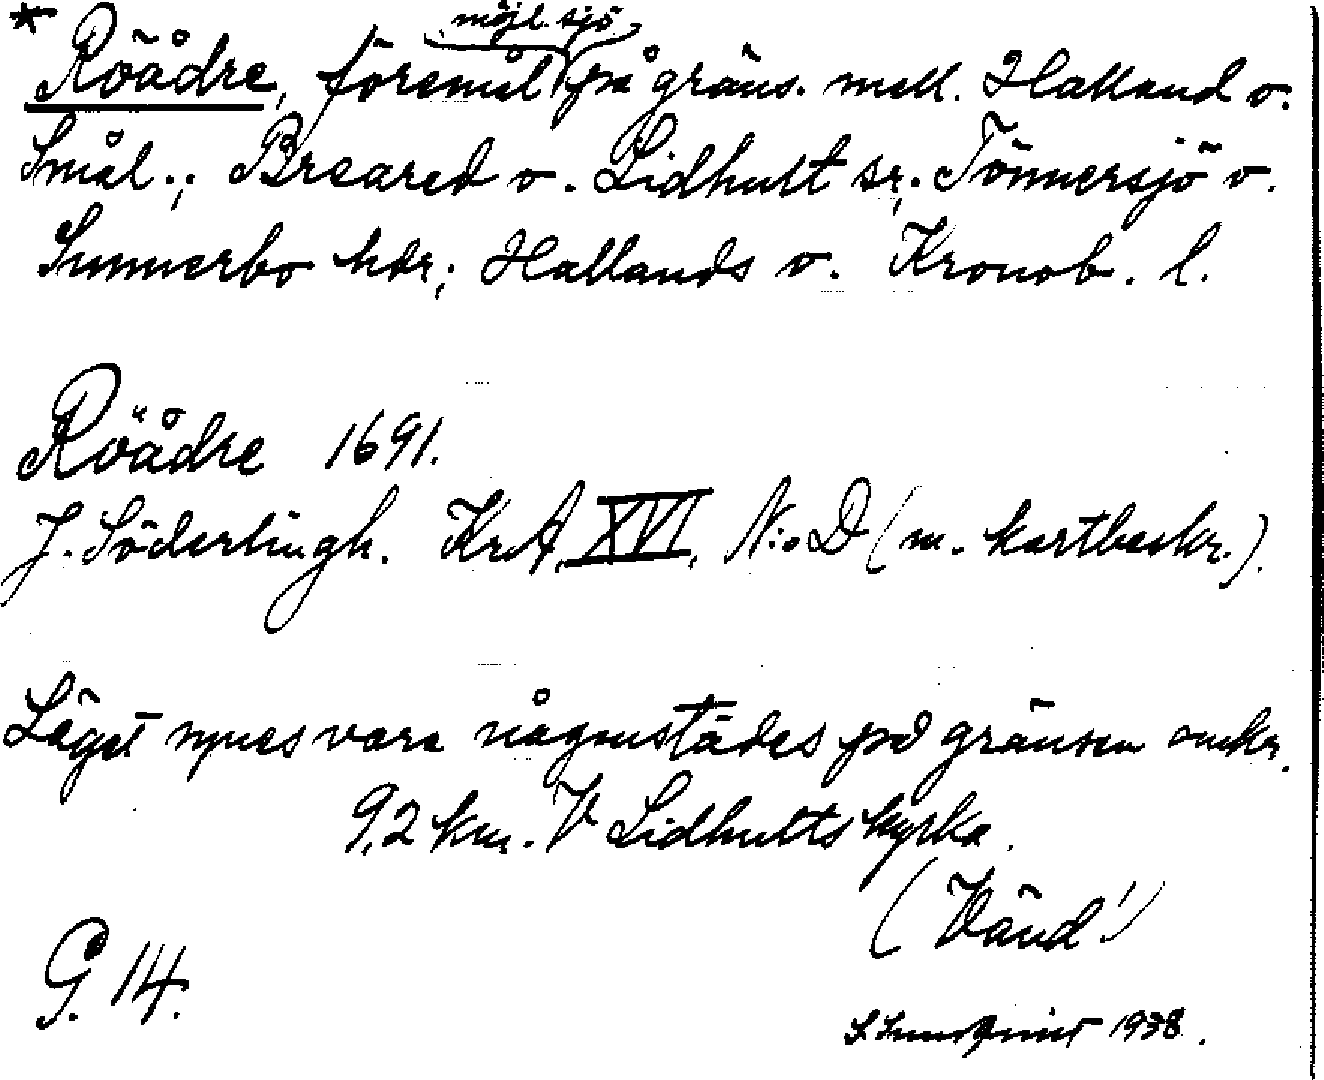 möjl. sjö
* Röådre, föremål på gräns. mell. Halland o.
Smål.; Breared o. Lidhult sr; Tönnersjö o.
Sunnerbo hdr; Hallands o. Kronob. l.
Röådre 1691.
J. Söderlingh. KrA, XVI, N:o D (m. kartbeskr.).
Läget synes vara någonstädes på gränsen omkr.
9,2 km. V Lidhults kyrka.
(Vänd!)
G. 14.
S. Sundqvist 1938.